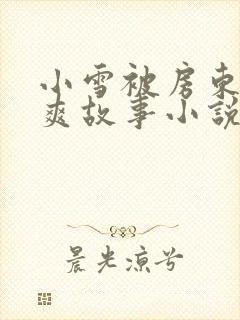 小雪被房东
爽故事小說
晨光凉兮